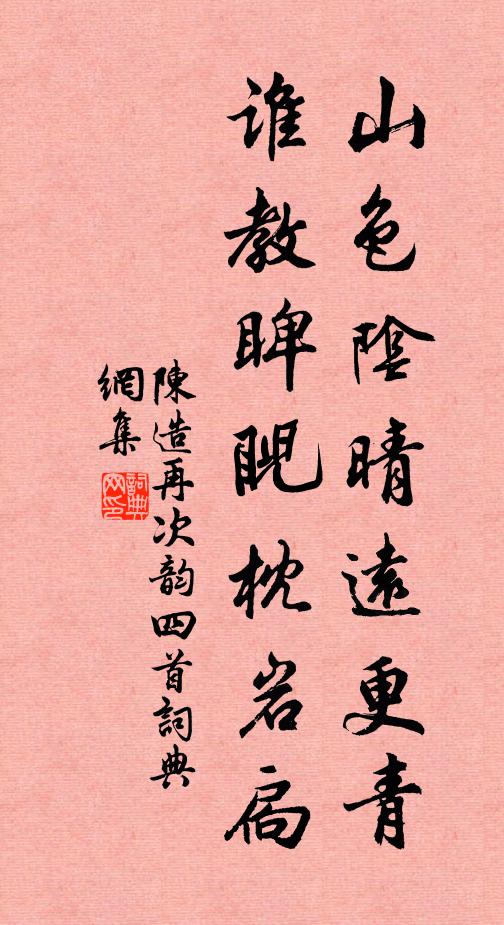 山色陰晴遠更青
谁教睥睨枕岩扃
陳造再次韵四首詞典
網集
詞典
网印